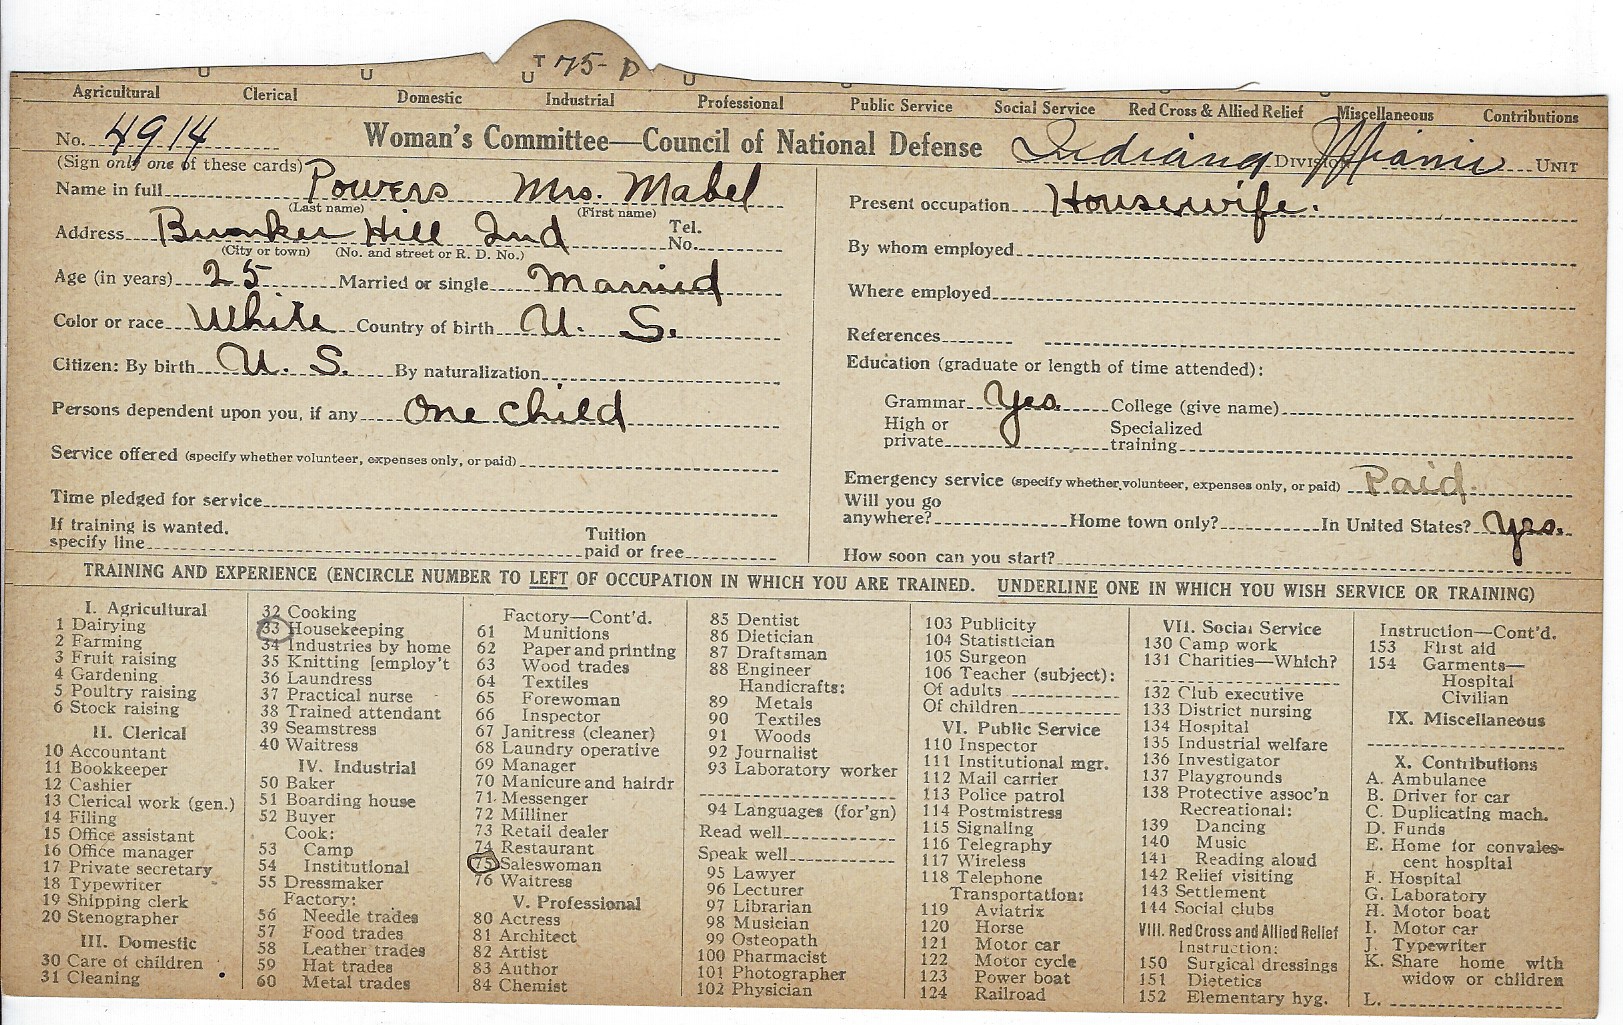 T 75- D
Agricultural Clerical Domestic Industrial Professional Public Service Social Service Red Cross & Allied Relief Miscellaneous Contributions
No. 4914 Woman's Committee—Council of National Defense Indiana DIVISION Miami UNIT
(Sign only one of these cards)
Name in full Powers Mrs. Mabel
(Last name) (First name)
Address Bunker Hill Ind Tel. No.
(City or town) (No. and street or R. D. No.)
Age (in years) 25 Married or single Married
Color or race White Country of birth U. S.
Citizen: By birth U. S. By naturalization
Persons dependent upon you, if any One child
Service offered (specify whether volunteer, expenses only, or paid)
Time pledged for service
If training is wanted.
specify line Tuition paid or free
Present occupation Housewife.
By whom employed
Where employed
References
Education (graduate or length of time attended):
Grammar Yes. College (give name)
High or private Specialized training
Emergency service (specify whether volunteer, expenses only, or paid) Paid.
Will you go
anywhere? Home town only? In United States? Yes.
How soon can you start?
TRAINING AND EXPERIENCE (ENCIRCLE NUMBER TO LEFT OF OCCUPATION IN WHICH YOU ARE TRAINED. UNDERLINE ONE IN WHICH YOU WISH SERVICE OR TRAINING)
I. Agricultural
1 Dairying
2 Farming
3 Fruit raising
4 Gardening
5 Poultry raising
6 Stock raising
II. Clerical
10 Accountant
11 Bookkeeper
12 Cashier
13 Clerical work (gen.)
14 Filing
15 Office assistant
16 Office manager
17 Private secretary
18 Typewriter
19 Shipping clerk
20 Stenographer
III. Domestic
30 Care of children
31 Cleaning
32 Cooking
33 Housekeeping
34 Industries by home
35 Knitting [employ't
36 Laundress
37 Practical nurse
38 Trained attendant
39 Seamstress
40 Waitress
IV. Industrial
50 Baker
51 Boarding house
52 Buyer
Cook:
53 Camp
54 Institutional
55 Dressmaker
Factory:
56 Needle trades
57 Food trades
58 Leather trades
59 Hat trades
60 Metal trades
Factory—Cont'd.
61 Munitions
62 Paper and printing
63 Wood trades
64 Textiles
65 Forewoman
66 Inspector
67 Janitress (cleaner)
68 Laundry operative
69 Manager
70 Manicure and hairdr
71 Messenger
72 Milliner
73 Retail dealer
74 Restaurant
75 Saleswoman
76 Waitress
V. Professional
80 Actress
81 Architect
82 Artist
83 Author
84 Chemist
85 Dentist
86 Dietician
87 Draftsman
88 Engineer
Handicrafts:
89 Metals
90 Textiles
91 Woods
92 Journalist
93 Laboratory worker
94 Languages (for'gn)
Read well
Speak well
95 Lawyer
96 Lecturer
97 Librarian
98 Musician
99 Osteopath
100 Pharmacist
101 Photographer
102 Physician
103 Publicity
104 Statistician
105 Surgeon
106 Teacher (subject):
Of adults
Of children
VI. Public Service
110 Inspector
111 Institutional mgr.
112 Mail carrier
113 Police patrol
114 Postmistress
115 Signaling
116 Telegraphy
117 Wireless
118 Telephone
Transportation:
119 Aviatrix
120 Horse
121 Motor car
122 Motor cycle
123 Power boat
124 Railroad
VII. Social Service
130 Camp work
131 Charities—Which?
132 Club executive
133 District nursing
134 Hospital
135 Industrial welfare
136 Investigator
137 Playgrounds
138 Protective assoc'n
Recreational:
139 Dancing
140 Music
141 Reading aloud
142 Relief visiting
143 Settlement
144 Social clubs
VIII. Red Cross and Allied Relief
Instruction:
150 Surgical dressings
151 Dietetics
152 Elementary hyg.
Instruction—Cont'd.
153 First aid
154 Garments—
Hospital
Civilian
IX. Miscellaneous
X. Contributions
A. Ambulance
B. Driver for car
C. Duplicating mach.
D. Funds
E. Home for convales-
cent hospital
F. Hospital
G. Laboratory
H. Motor boat
I. Motor car
J. Typewriter
K. Share home with
widow or children
L.